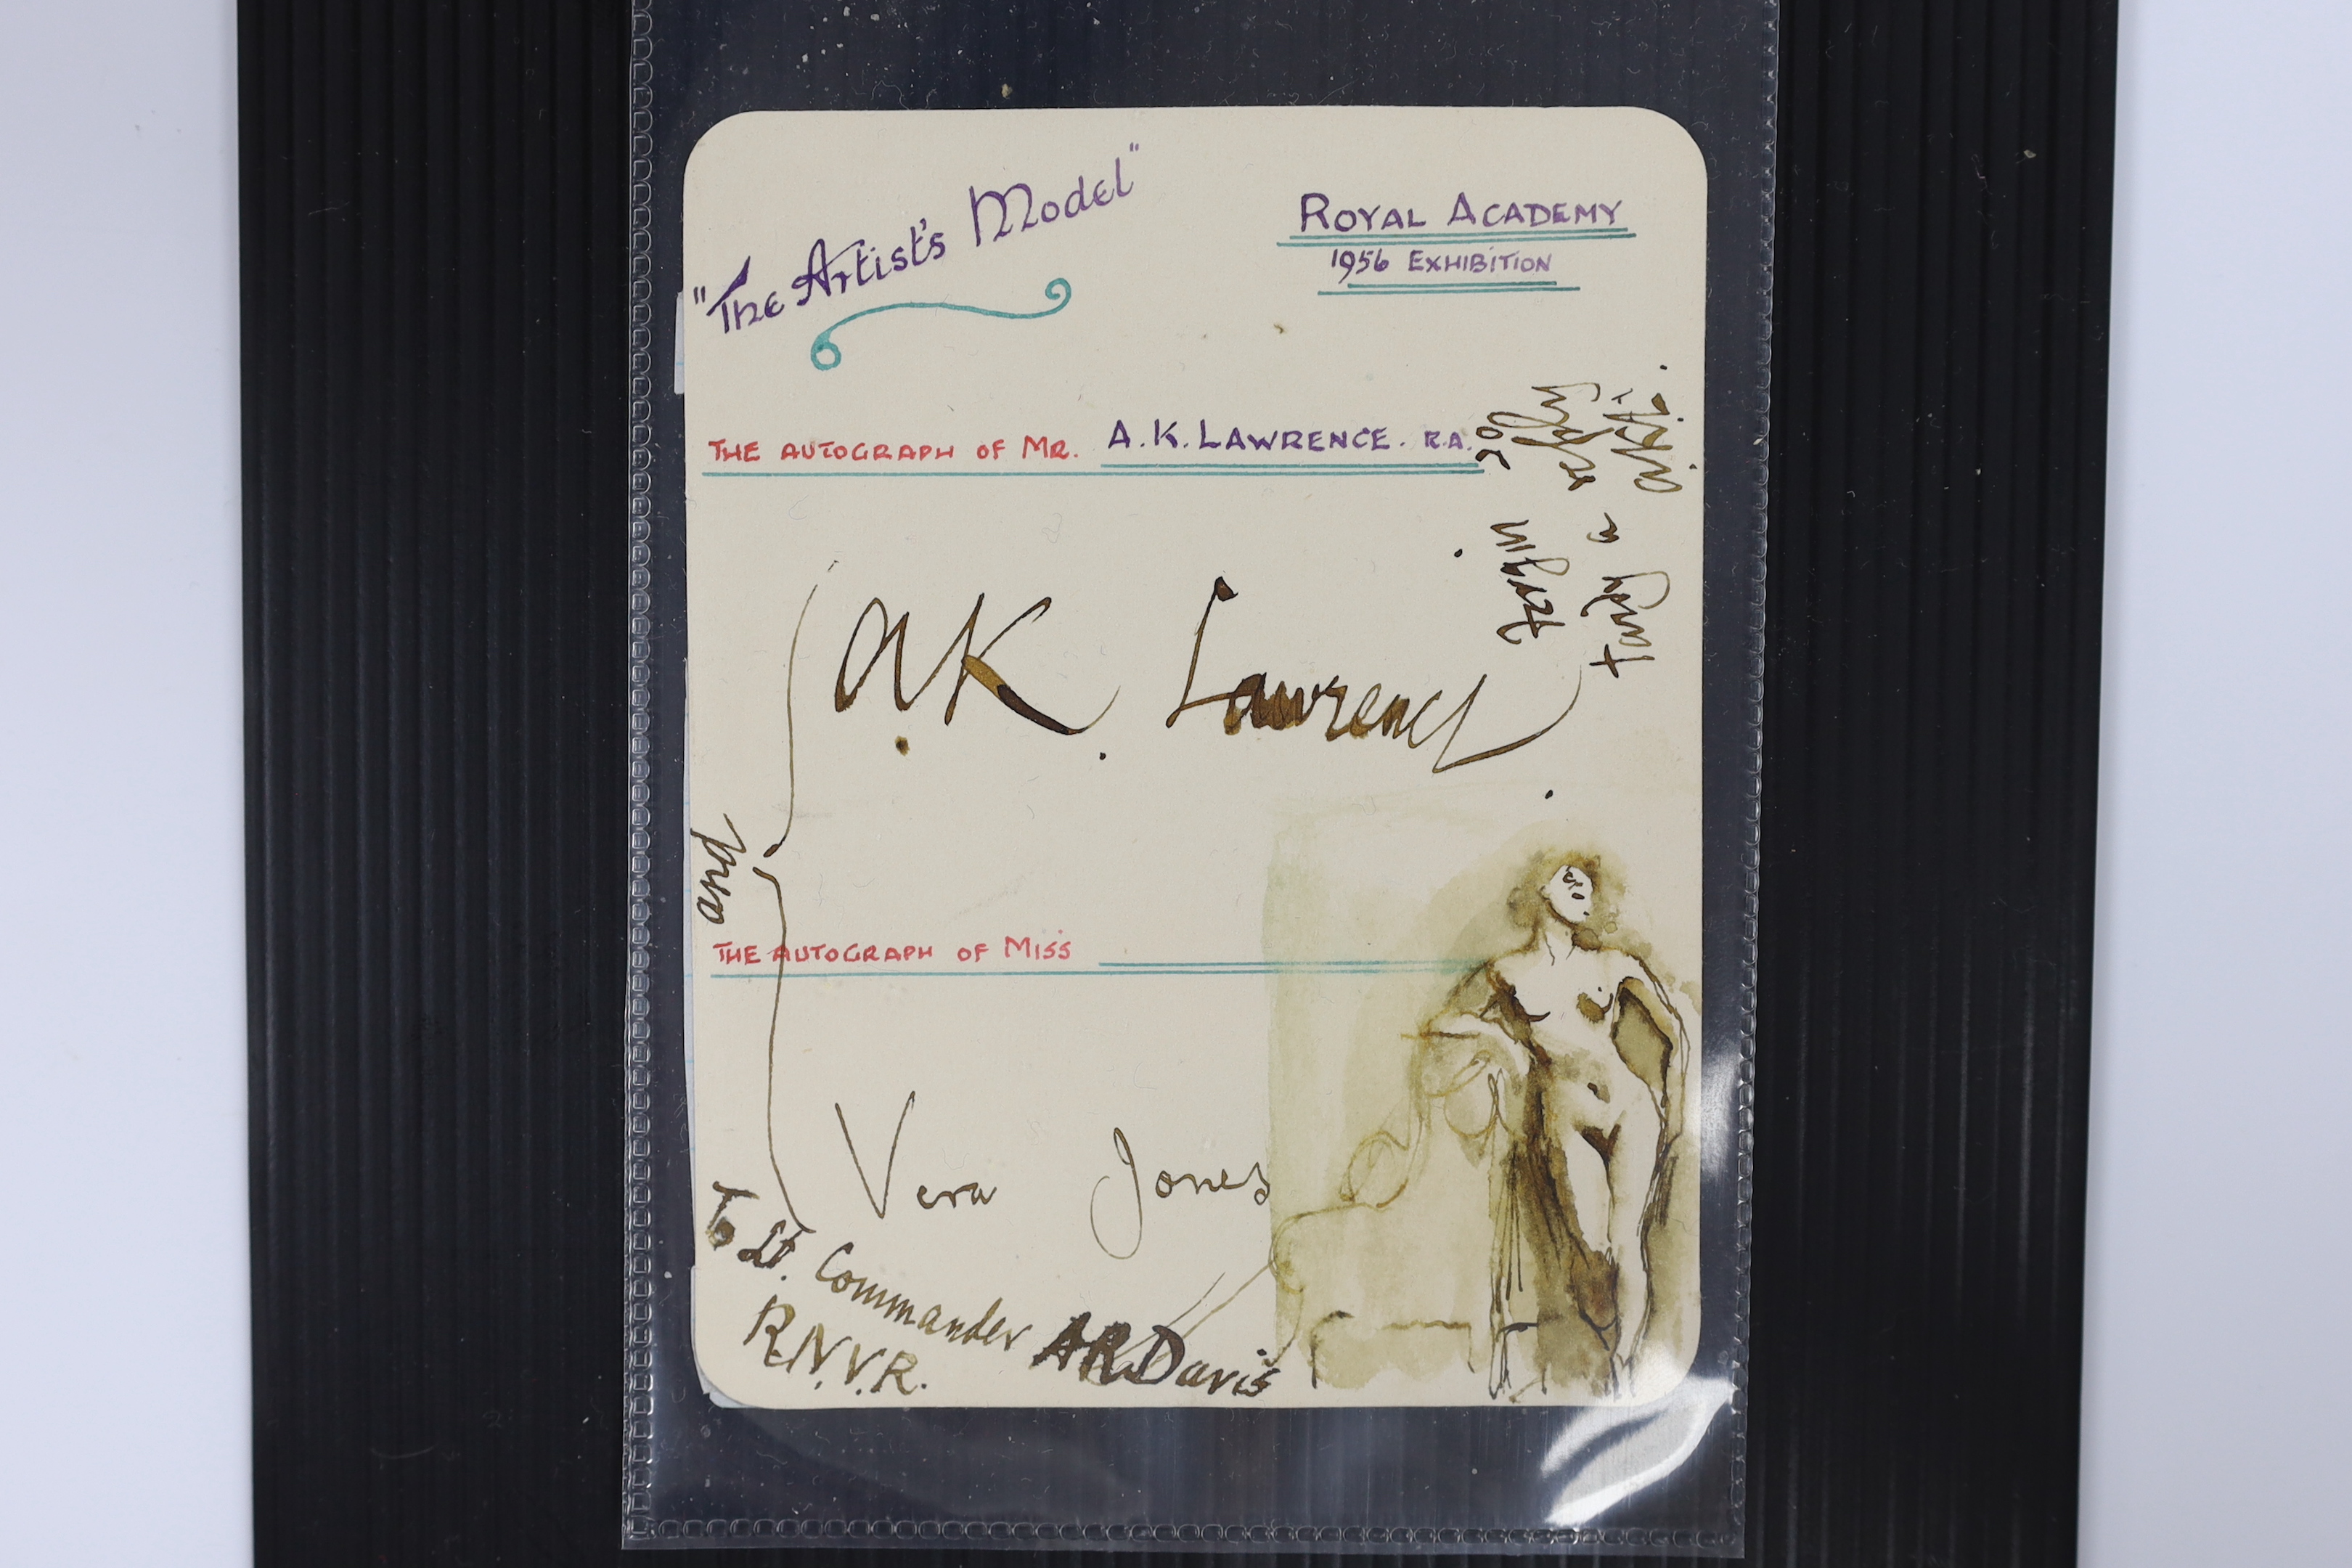 "The Artist's Model"
ROYAL ACADEMY
1956 EXHIBITION
THE AUTOGRAPH OF MR. A.K. LAWRENCE. R.A.
A.K. Lawrence
THE AUTOGRAPH OF MISS
Vera Jones
To Lt. Commander ARDavis
R.N.V.R.